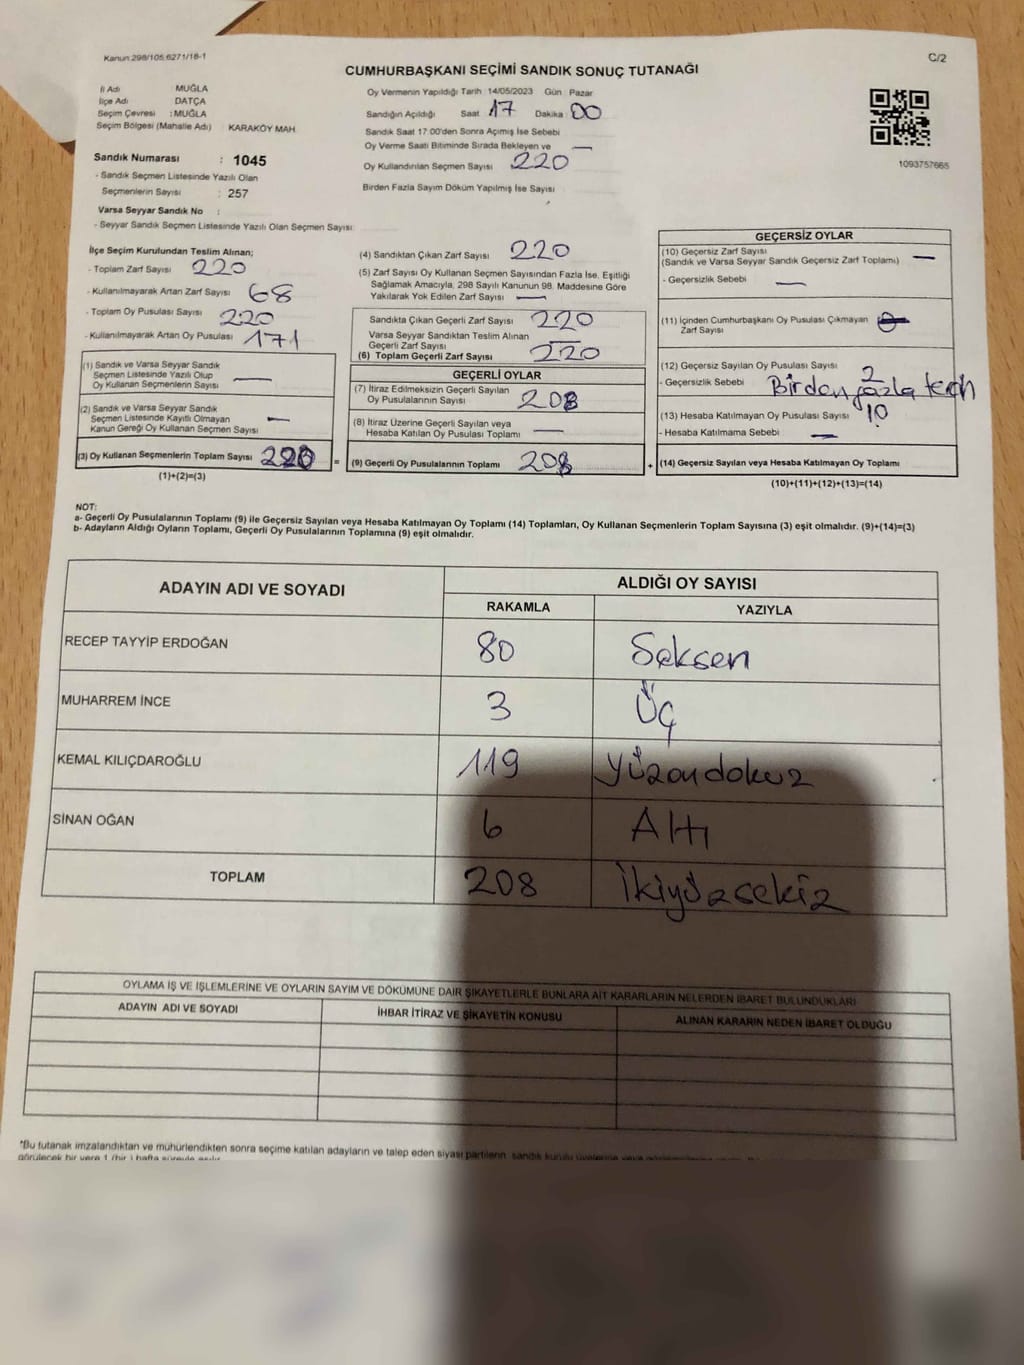 Kanun:298/105;6271/18-1
C/2
CUMHURBAŞKANI SEÇİMİ SANDIK SONUÇ TUTANAĞI
İl Adı MUĞLA
İlçe Adı DATÇA
Seçim Çevresi : MUĞLA
Seçim Bölgesi (Mahalle Adı) KARAKÖY MAH.
Sandık Numarası : 1045
- Sandık Seçmen Listesinde Yazılı Olan
Seçmenlerin Sayısı : 257
Varsa Seyyar Sandık No :
- Seyyar Sandık Seçmen Listesinde Yazılı Olan Seçmen Sayısı:
Oy Vermenin Yapıldığı Tarih : 14/05/2023 Gün : Pazar
Sandığın Açıldığı Saat : 17 Dakika : 00
Sandık Saat 17:00'den Sonra Açımış İse Sebebi
Oy Verme Saati Bitiminde Sırada Bekleyen ve —
Oy Kullandırılan Seçmen Sayısı 220
Birden Fazla Sayım Döküm Yapılmış İse Sayısı
1093757665
İlçe Seçim Kurulundan Teslim Alınan;
- Toplam Zarf Sayısı 220
- Kullanılmayarak Artan Zarf Sayısı 68
- Toplam Oy Pusulası Sayısı 220
- Kullanılmayarak Artan Oy Pusulası 171
(1) Sandık ve Varsa Seyyar Sandık
Seçmen Listesinde Yazılı Olup
Oy Kullanan Seçmenlerin Sayısı —
(2) Sandık ve Varsa Seyyar Sandık
Seçmen Listesinde Kayıtlı Olmayan
Kanun Gereği Oy Kullanan Seçmen Sayısı —
(3) Oy Kullanan Seçmenlerin Toplam Sayısı 220
(1)+(2)=(3)
(4) Sandıktan Çıkan Zarf Sayısı 220
(5) Zarf Sayısı Oy Kullanan Seçmen Sayısından Fazla İse, Eşitliği
Sağlamak Amacıyla, 298 Sayılı Kanunun 98. Maddesine Göre
Yakılarak Yok Edilen Zarf Sayısı —
Sandıkta Çıkan Geçerli Zarf Sayısı 220
Varsa Seyyar Sandıktan Teslim Alınan
Geçerli Zarf Sayısı —
(6) Toplam Geçerli Zarf Sayısı 220
GEÇERLİ OYLAR
(7) İtiraz Edilmeksizin Geçerli Sayılan
Oy Pusulalarının Sayısı 208
(8) İtiraz Üzerine Geçerli Sayılan veya
Hesaba Katılan Oy Pusulası Toplamı —
= (9) Geçerli Oy Pusulalarının Toplamı 208
GEÇERSİZ OYLAR
(10) Geçersiz Zarf Sayısı
(Sandık ve Varsa Seyyar Sandık Geçersiz Zarf Toplamı) —
- Geçersizlik Sebebi —
(11) İçinden Cumhurbaşkanı Oy Pusulası Çıkmayan
Zarf Sayısı
(12) Geçersiz Sayılan Oy Pusulası Sayısı 2
- Geçersizlik Sebebi Birden fazla tech
(13) Hesaba Katılmayan Oy Pusulası Sayısı 10
- Hesaba Katılmama Sebebi —
+ (14) Geçersiz Sayılan veya Hesaba Katılmayan Oy Toplamı
(10)+(11)+(12)+(13)=(14)
NOT:
a- Geçerli Oy Pusulalarının Toplamı (9) ile Geçersiz Sayılan veya Hesaba Katılmayan Oy Toplamı (14) Toplamları, Oy Kullanan Seçmenlerin Toplam Sayısına (3) eşit olmalıdır. (9)+(14)=(3)
b- Adayların Aldığı Oyların Toplamı, Geçerli Oy Pusulalarının Toplamına (9) eşit olmalıdır.
ADAYIN ADI VE SOYADI ALDIĞI OY SAYISI
RAKAMLA YAZIYLA
RECEP TAYYİP ERDOĞAN 80 Seksen
MUHARREM İNCE 3 Üç
KEMAL KILIÇDAROĞLU 119 Yüzondokuz
SİNAN OĞAN 6 Altı
TOPLAM 208 İkiyüzsekiz
OYLAMA İŞ VE İŞLEMLERİNE VE OYLARIN SAYIM VE DÖKÜMÜNE DAİR ŞİKAYETLERLE BUNLARA AİT KARARLARIN NELERDEN İBARET BULUNDUKLARI
ADAYIN ADI VE SOYADI İHBAR İTİRAZ VE ŞİKAYETİN KONUSU ALINAN KARARIN NEDEN İBARET OLDUĞU
*Bu tutanak imzalandıktan ve mühürlendikten sonra seçime katılan adayların ve talep eden siyasi partilerin sandık kurulu üyelerine veya
görülecek bir yere 1 (bir ) hafta süreyle asılır.